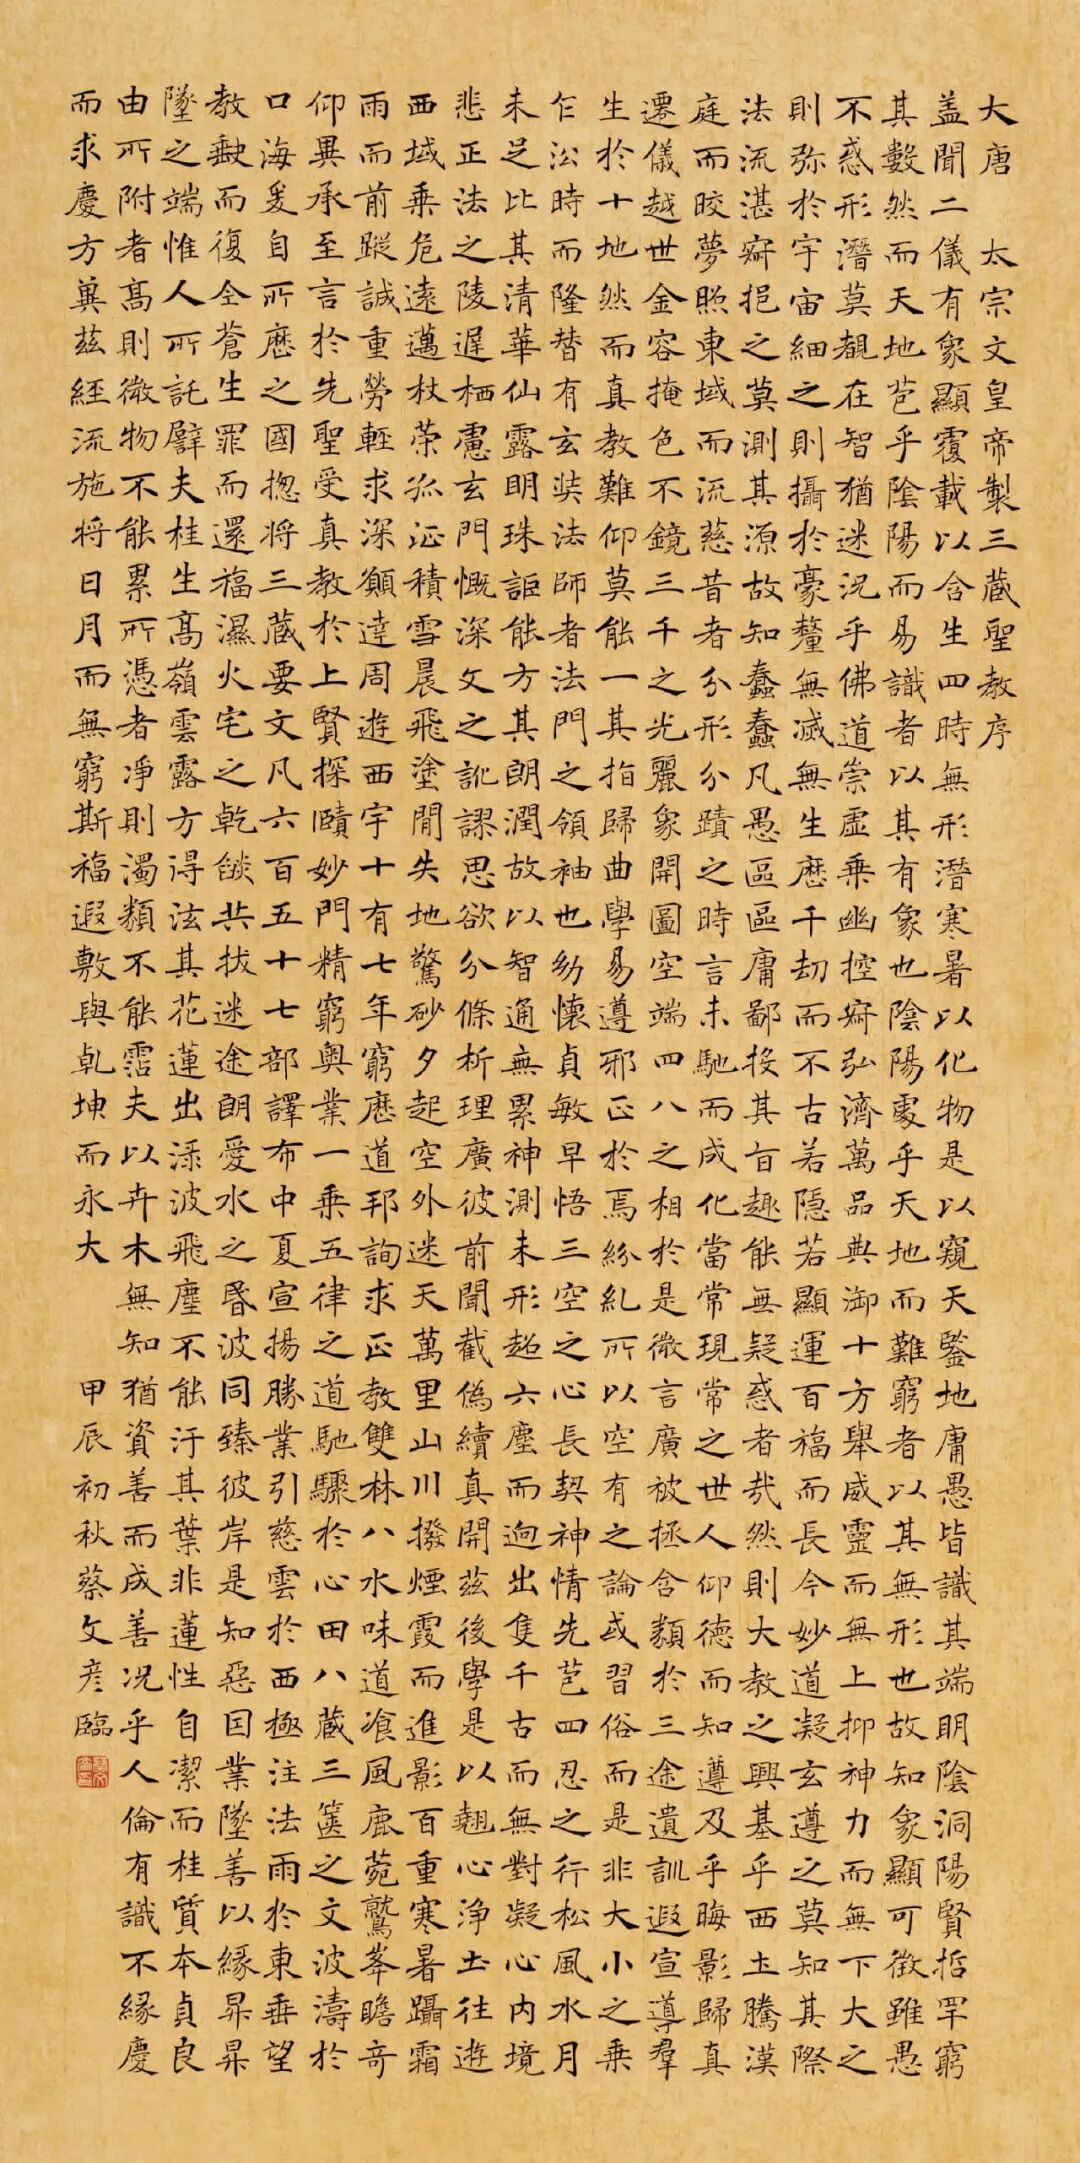 大唐　太宗文皇帝製三蔵聖教序
盖聞二儀有象顯覆載以含生四時無形潛寒暑以化物是以窺天鑒地庸愚皆識其端明陰洞陽賢哲罕窮
其數然而天地苞乎陰陽而易識者以其有象也陰陽處乎天地而難窮者以其無形也故知象顯可徵雖愚
不惑形潛莫覩在智猶迷況乎佛道崇虛乘幽控寂弘濟萬品典御十方舉威靈而無上抑神力而無下大之
則弥於宇宙細之則攝於豪釐無滅無生歷千劫而不古若隱若顯運百福而長今妙道凝玄遵之莫知其際
法流湛寂挹之莫測其源故知蠢蠢凡愚區區庸鄙投其旨趣能無疑惑者哉然則大教之興基乎西土騰漢
庭而晈夢照東域而流慈昔者分形分蹟之時言未馳而成化當常現常之世人仰德而知遵及乎晦影歸真
遷儀越世金容掩色不鏡三千之光麗象開圖空端四八之相於是微言廣被拯含類於三途遺訓遐宣導羣
生於十地然而真教難仰莫能一其指歸曲學易遵邪正於焉紛糺所以空有之論或習俗而是非大小之乘
乍沿時而隆替有玄奘法師者法門之領袖也幼懷貞敏早悟三空之心長契神情先苞四忍之行松風水月
未足比其清華仙露明珠詎能方其朗潤故以智通無累神測未形超六塵而迥出隻千古而無對凝心内境
悲正法之陵遲栖慮玄門慨深文之訛謬思欲分條析理廣彼前聞截偽續真開茲後學是以翹心淨土往遊
西域乘危遠邁杖策孤征積雪晨飛塗閒失地驚砂夕起空外迷天萬里山川撥煙霞而進影百重寒暑躡霜
雨而前蹤誠重勞輕求深願達周遊西宇十有七年窮歷道邦詢求正教雙林八水味道飡風鹿菀鷲峯瞻奇
仰異承至言於先聖受真教於上賢探賾妙門精窮奧業一乘五律之道馳驟於心田八蔵三篋之文波濤於
口海爰自所歷之國揔將三蔵要文凡六百五十七部譯布中夏宣揚勝業引慈雲於西極注法雨於東垂望
教缺而復全蒼生罪而還福濕火宅之乾燄共拔迷途朗愛水之昏波同臻彼岸是知惡因業墜善以緣昇昇
墜之端惟人所託譬夫桂生高嶺雲露方得泫其花蓮出淥波飛塵不能汙其葉非蓮性自潔而桂質本貞良
由所附者高則微物不能累所憑者淨則濁類不能霑夫以卉木無知猶資善而成善況乎人倫有識不緣慶
而求慶方冀茲經流施將日月而無窮斯福遐敷與乾坤而永大　甲辰初秋蔡文彦臨